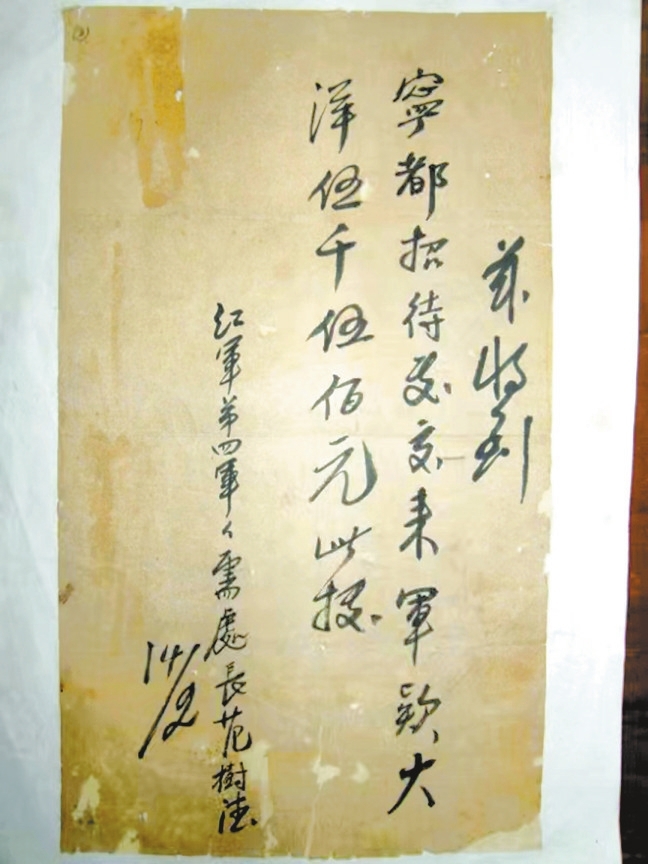 茲收到
寧都招待处交来軍款大
洋伍千伍佰元此据
红軍第四軍々需處長范樹德
14/2